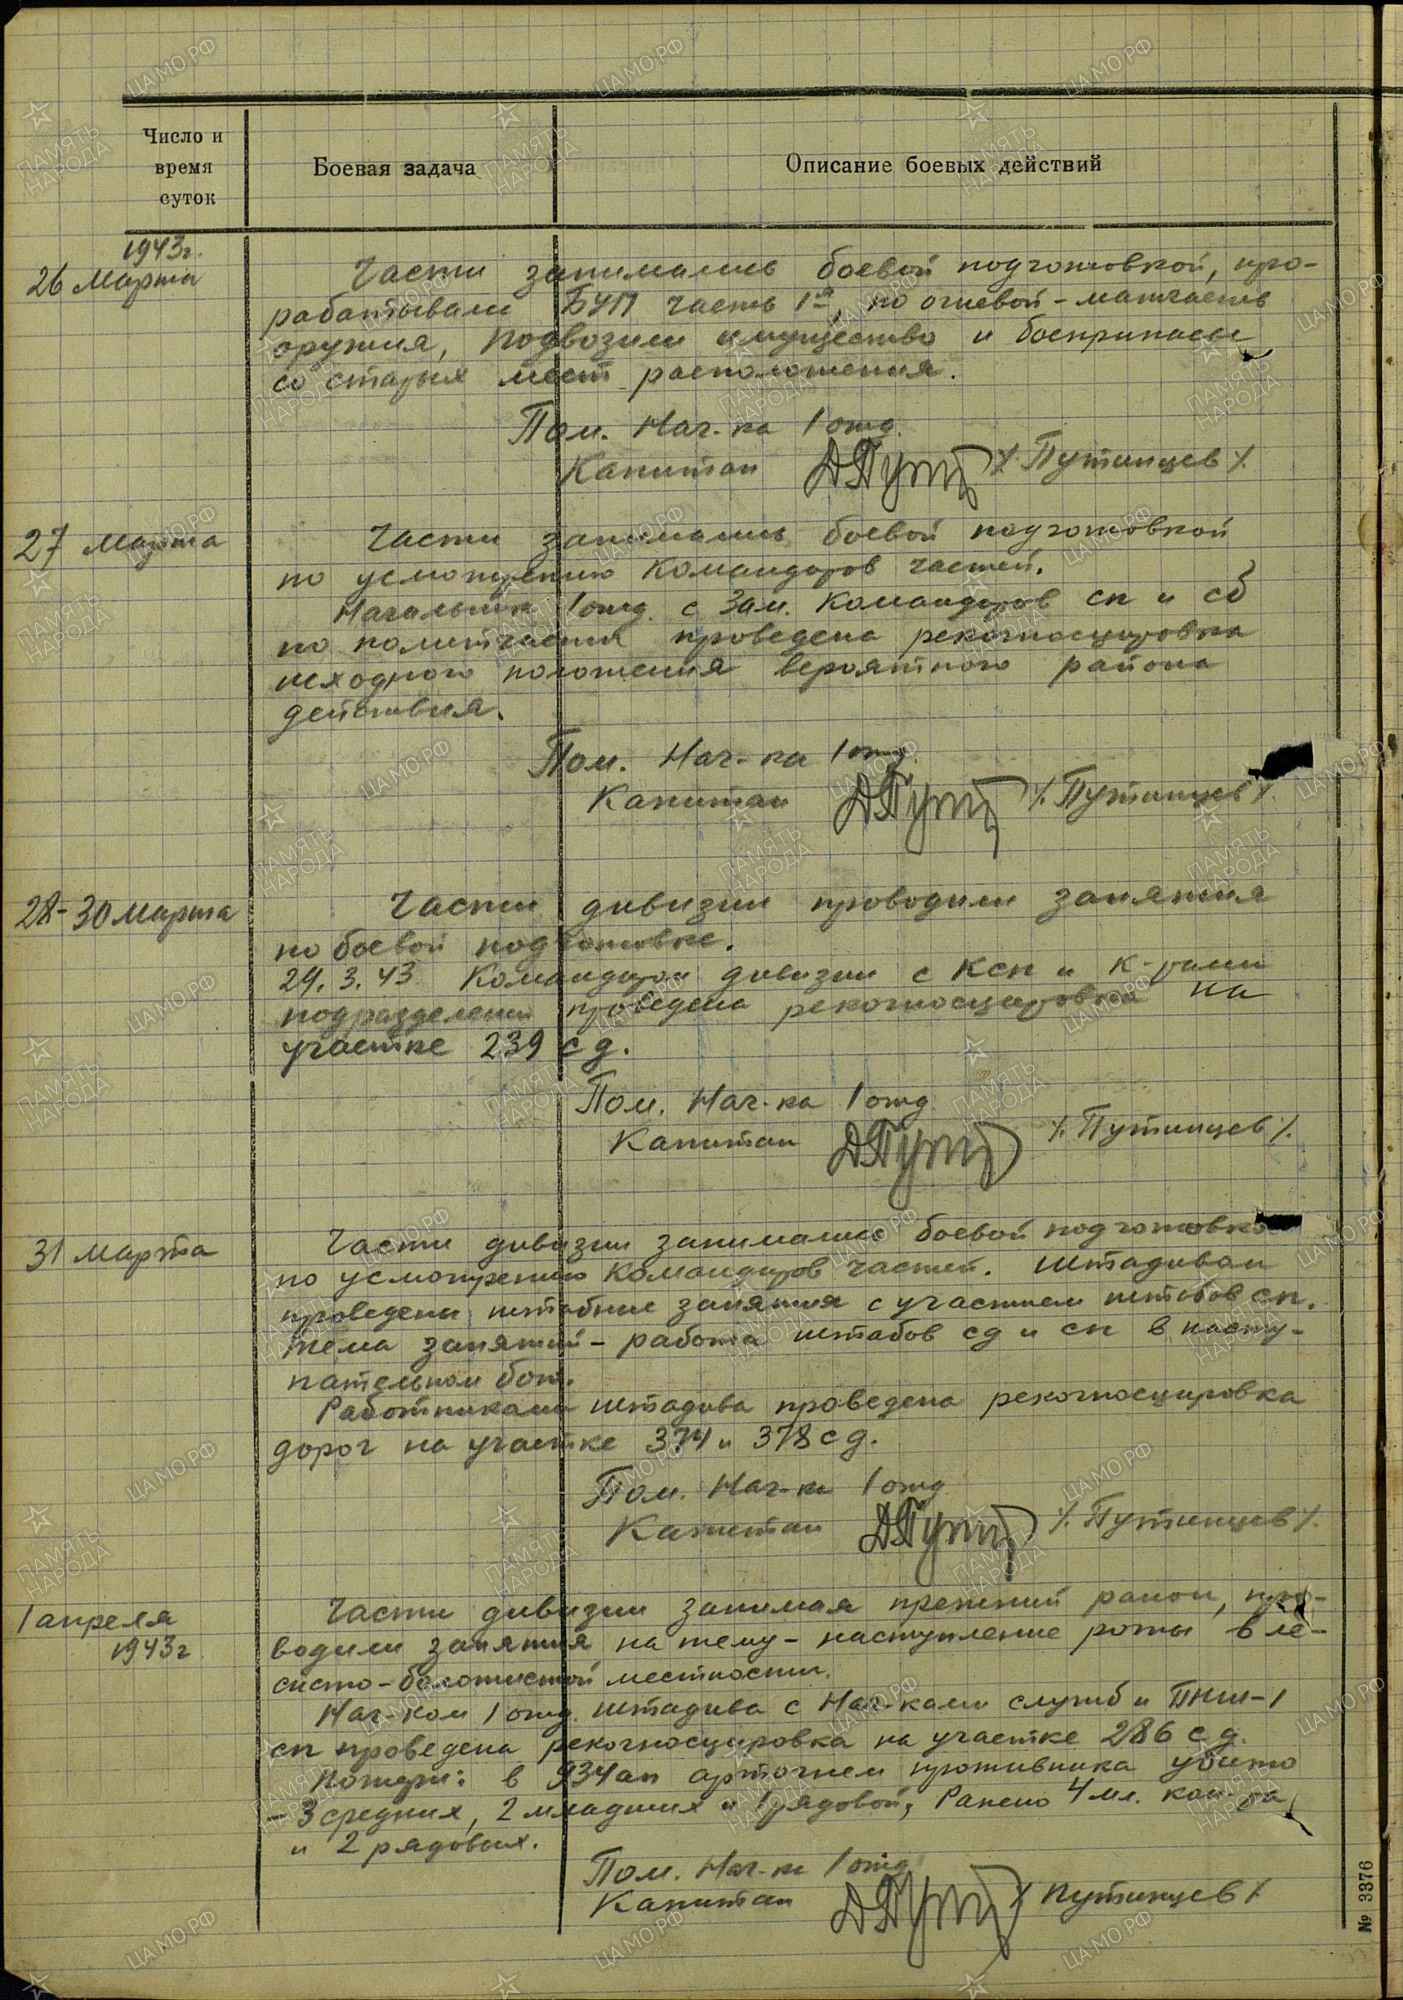 Число и
время
суток
Боевая задача
Описание боевых действий
1943г.
26 марта
Части занимались боевой подготовкой, про-
рабатывали БУП часть 1ª, по огневой - матчасть
оружия, подвозили имущество и боеприпасы
со старых мест расположения.
Пом. Нач-ка 1 отд.
Капитан /Путинцев/.
27 марта
Части занимались боевой подготовкой
по усмотрению командиров частей.
Начальник 1 отд. с Зам. Командиров сп и сб
по политчасти проведена рекогносцировка
исходного положения вероятного района
действия.
Пом. Нач-ка 1 отд.
Капитан /Путинцев/.
28-30 марта
Части дивизии проводили занятия
по боевой подготовке.
29.3.43 Командиром дивизии с Ксп и к-рами
подразделений проведена рекогносцировка на
участке 239 сд.
Пом. Нач-ка 1 отд
Капитан /Путинцев/.
31 марта
Части дивизии занимались боевой подготовко
по усмотрению командиров частей. Штадивом
проведены штабные занятия с участием штабов сп.
тема занятий - работа штабов сд и сп в насту-
пательном бою.
Работниками штадива проведена рекогносцировка
дорог на участке 374 и 378 сд.
Пом. Нач-ка 1 отд
Капитан /Путинцев/.
1 апреля
1943г
Части дивизии занимая прежний район, про-
водили занятия на тему - наступление роты в ле-
систо-болотистой местности.
Нач-ком 1 отд. штадива с Нач-ками служб и ПНШ-1
сп проведена рекогносцировка на участке 286 сд.
Потери: в 934 ап артогнем противника убито
- 3 средних, 2 младших и 1 рядовой, Ранено 4 мл. ком-ра
и 2 рядовых.
Пом. Нач-ка 1 отд
Капитан /Путинцев/
№ 3376
ПАМЯТЬ НАРОДА
ЦАМО.РФ